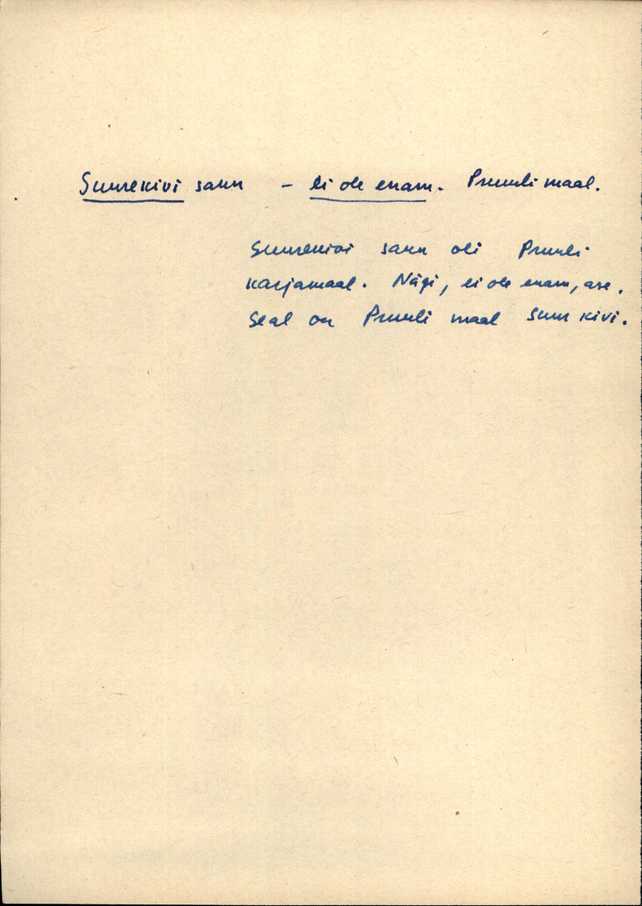 Suurekivi saun - ei ole enam. Pruuli maal.
Suurekivi saun oli Pruuli
karjamaal. Nägi, ei ole enam, ase.
Seal on Pruuli maal suur kivi.